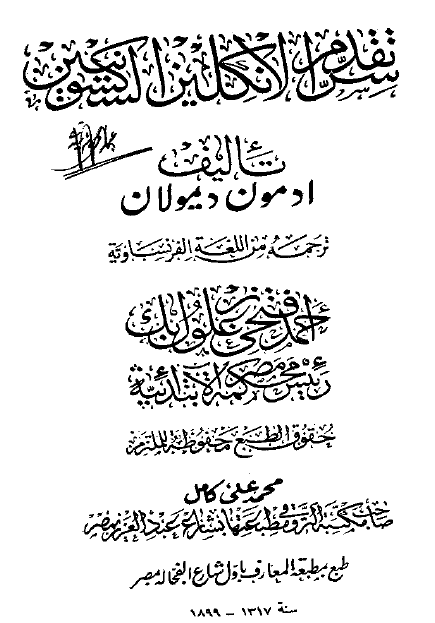 سر تقدم الانكليز السكسونيين
تأليف
ادمون ديمولان
ترجمه من اللغة الفرنساوية
احمد فتحى زغلول بك
رئيس محكمة مصر الابتدائية
حقوق الطبع محفوظة للملتزم
محمد على كامل
صاحب مكتبة الترقى ومطبعتها بشارع عبد العزيز بمصر
طبع بمطبعة المعارف باول شارع الفجاله مصر
سنة ١٣١٧ – ١٨٩٩